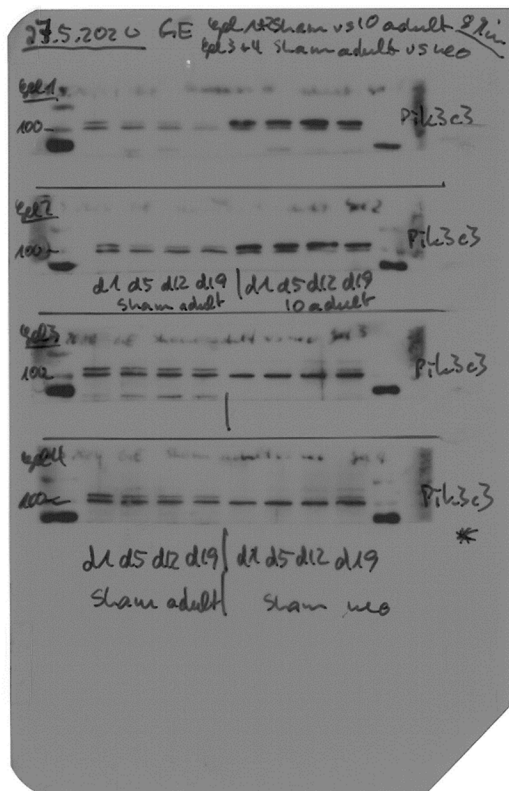 27.5.2020 GE Gel 1+2 Sham vs IO adult 8 Min
Gel 3+4 Sham adult vs neo
Gel 1
100 Pik3c3
Gel2
100 Pik3c3
d1 d5 d12 d19 | d1 d5 d12 d19
Sham adult IO adult
Gel3
100 Pik3c3
Gel4
100 Pik3c3
d1 d5 d12 d19 d1 d5 d12 d19
Sham adult Sham neo